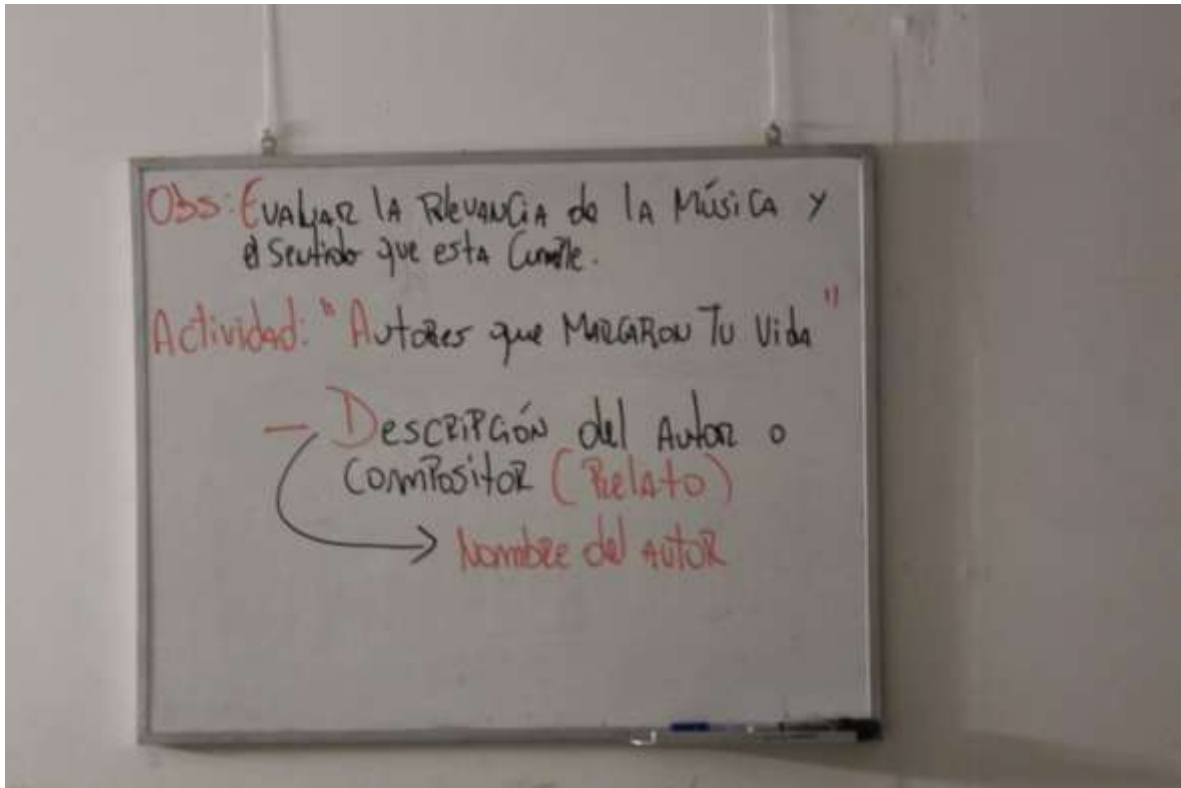 Obs: Evaluar la Relevancia de la Música y
el Sentido que esta Cumple.
Actividad: "Autores que Marcaron Tu Vida"
— Descripción del Autor o
Compositor (Relato)
→ Nombre del Autor